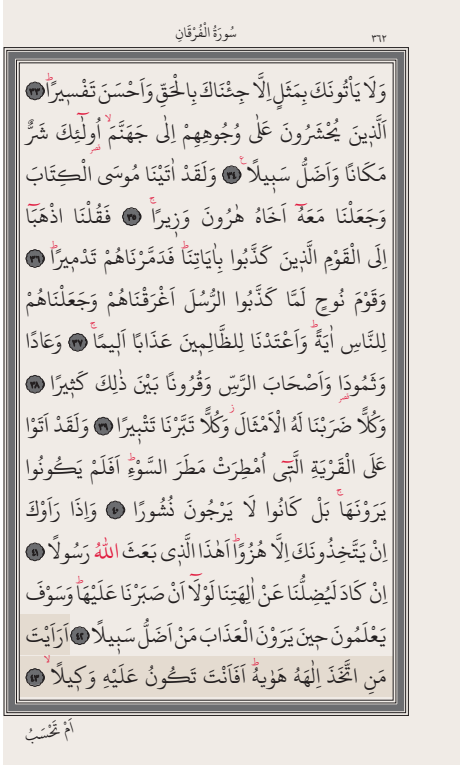 سُورَةُ الْفُرْقَانِ ٣٦٢
وَلَا يَأْتُونَكَ بِمَثَلٍ اِلَّا جِئْنَاكَ بِالْحَقِّ وَاَحْسَنَ تَفْسٖيرًاؕ ٣٣
اَلَّذٖينَ يُحْشَرُونَ عَلٰى وُجُوهِهِمْ اِلٰى جَهَنَّمَۙ اُولٰٓئِكَ شَرٌّ
مَكَانًا وَاَضَلُّ سَبٖيلًاࣖ ٣٤ وَلَقَدْ اٰتَيْنَا مُوسَى الْكِتَابَ
وَجَعَلْنَا مَعَهُٓ اَخَاهُ هٰرُونَ وَزٖيرًاۚ ٣٥ فَقُلْنَا اذْهَبَٓا
اِلَى الْقَوْمِ الَّذٖينَ كَذَّبُوا بِاٰيَاتِنَاؕ فَدَمَّرْنَاهُمْ تَدْمٖيرًاؕ ٣٦
وَقَوْمَ نُوحٍ لَمَّا كَذَّبُوا الرُّسُلَ اَغْرَقْنَاهُمْ وَجَعَلْنَاهُمْ
لِلنَّاسِ اٰيَةًؕ وَاَعْتَدْنَا لِلظَّالِمٖينَ عَذَابًا اَلٖيمًاۚ ٣٧ وَعَادًا
وَثَمُودَا۬ وَاَصْحَابَ الرَّسِّ وَقُرُونًا بَيْنَ ذٰلِكَ كَثٖيرًا ٣٨
وَكُلًّا ضَرَبْنَا لَهُ الْاَمْثَالَؗ وَكُلًّا تَبَّرْنَا تَتْبٖيرًا ٣٩ وَلَقَدْ اَتَوْا
عَلَى الْقَرْيَةِ الَّتٖٓى اُمْطِرَتْ مَطَرَ السَّوْءِؕ اَفَلَمْ يَكُونُوا
يَرَوْنَهَاۚ بَلْ كَانُوا لَا يَرْجُونَ نُشُورًا ٤٠ وَاِذَا رَاَوْكَ
اِنْ يَتَّخِذُونَكَ اِلَّا هُزُوًاؕ اَهٰذَا الَّذٖى بَعَثَ اللّٰهُ رَسُولًا ٤١
اِنْ كَادَ لَيُضِلُّنَا عَنْ اٰلِهَتِنَا لَوْلَٓا اَنْ صَبَرْنَا عَلَيْهَاؕ وَسَوْفَ
يَعْلَمُونَ حٖينَ يَرَوْنَ الْعَذَابَ مَنْ اَضَلُّ سَبٖيلًا ٤٢ اَرَاَيْتَ
مَنِ اتَّخَذَ اِلٰهَهُ هَوٰيهُؕ اَفَاَنْتَ تَكُونُ عَلَيْهِ وَكٖيلًاۙ ٤٣
اَمْ تَحْسَبُ